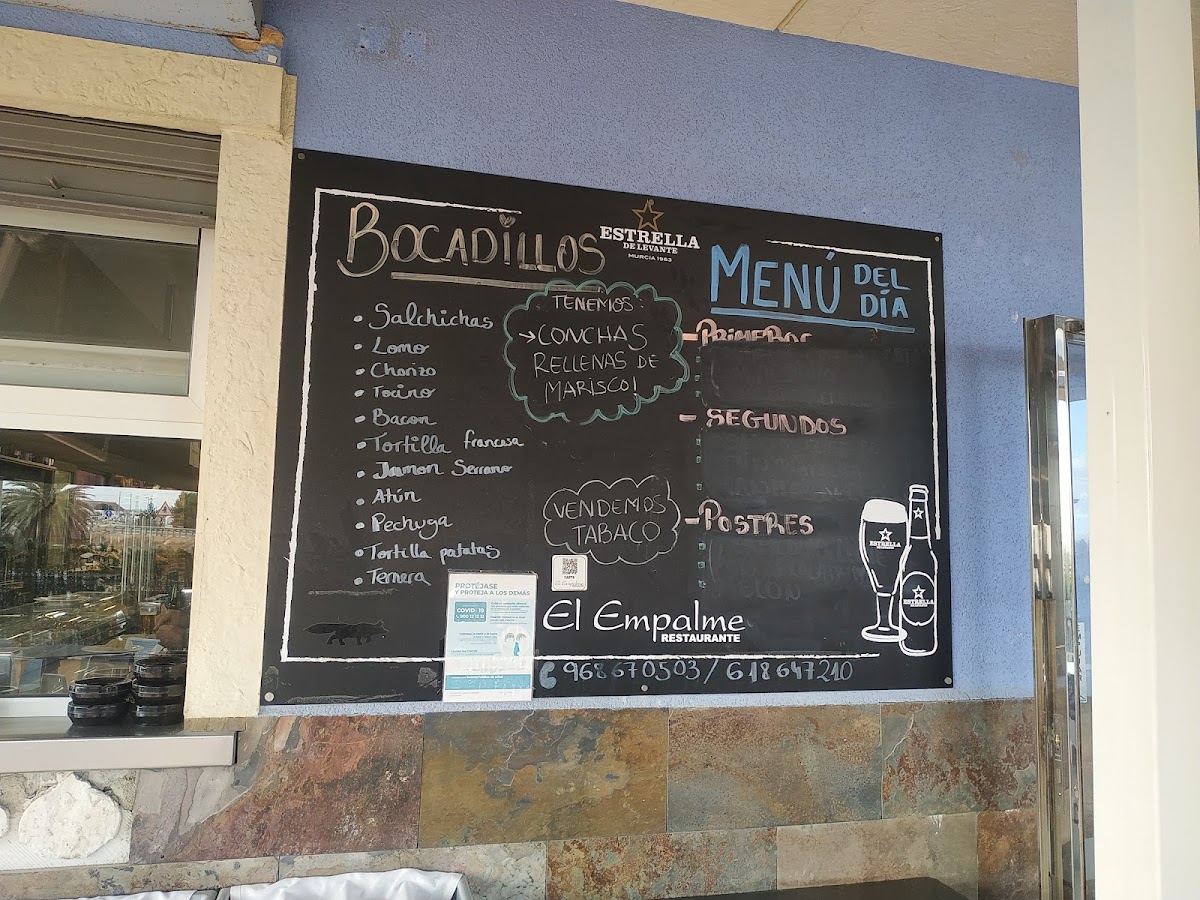 BOCADILLOS
• Salchichas
• Lomo
• Chorizo
• Tocino
• Bacon
• Tortilla francesa
• Jamon Serrano
• Atún
• Pechuga
• Tortilla patatas
• Ternera
ESTRELLA
DE LEVANTE
MURCIA 1963
TENEMOS:
→CONCHAS
RELLENAS DE
MARISCO!
VENDEMOS
TABACO
MENÚ DEL
DÍA
- PRIMEROS
- SEGUNDOS
- POSTRES
MELÓN
ESTRELLA
ESTRELLA
PROTÉJASE
Y PROTEJA A LOS DEMÁS
COVID-19
900 12 12 12
El Empalme
RESTAURANTE
968670503 / 618647210